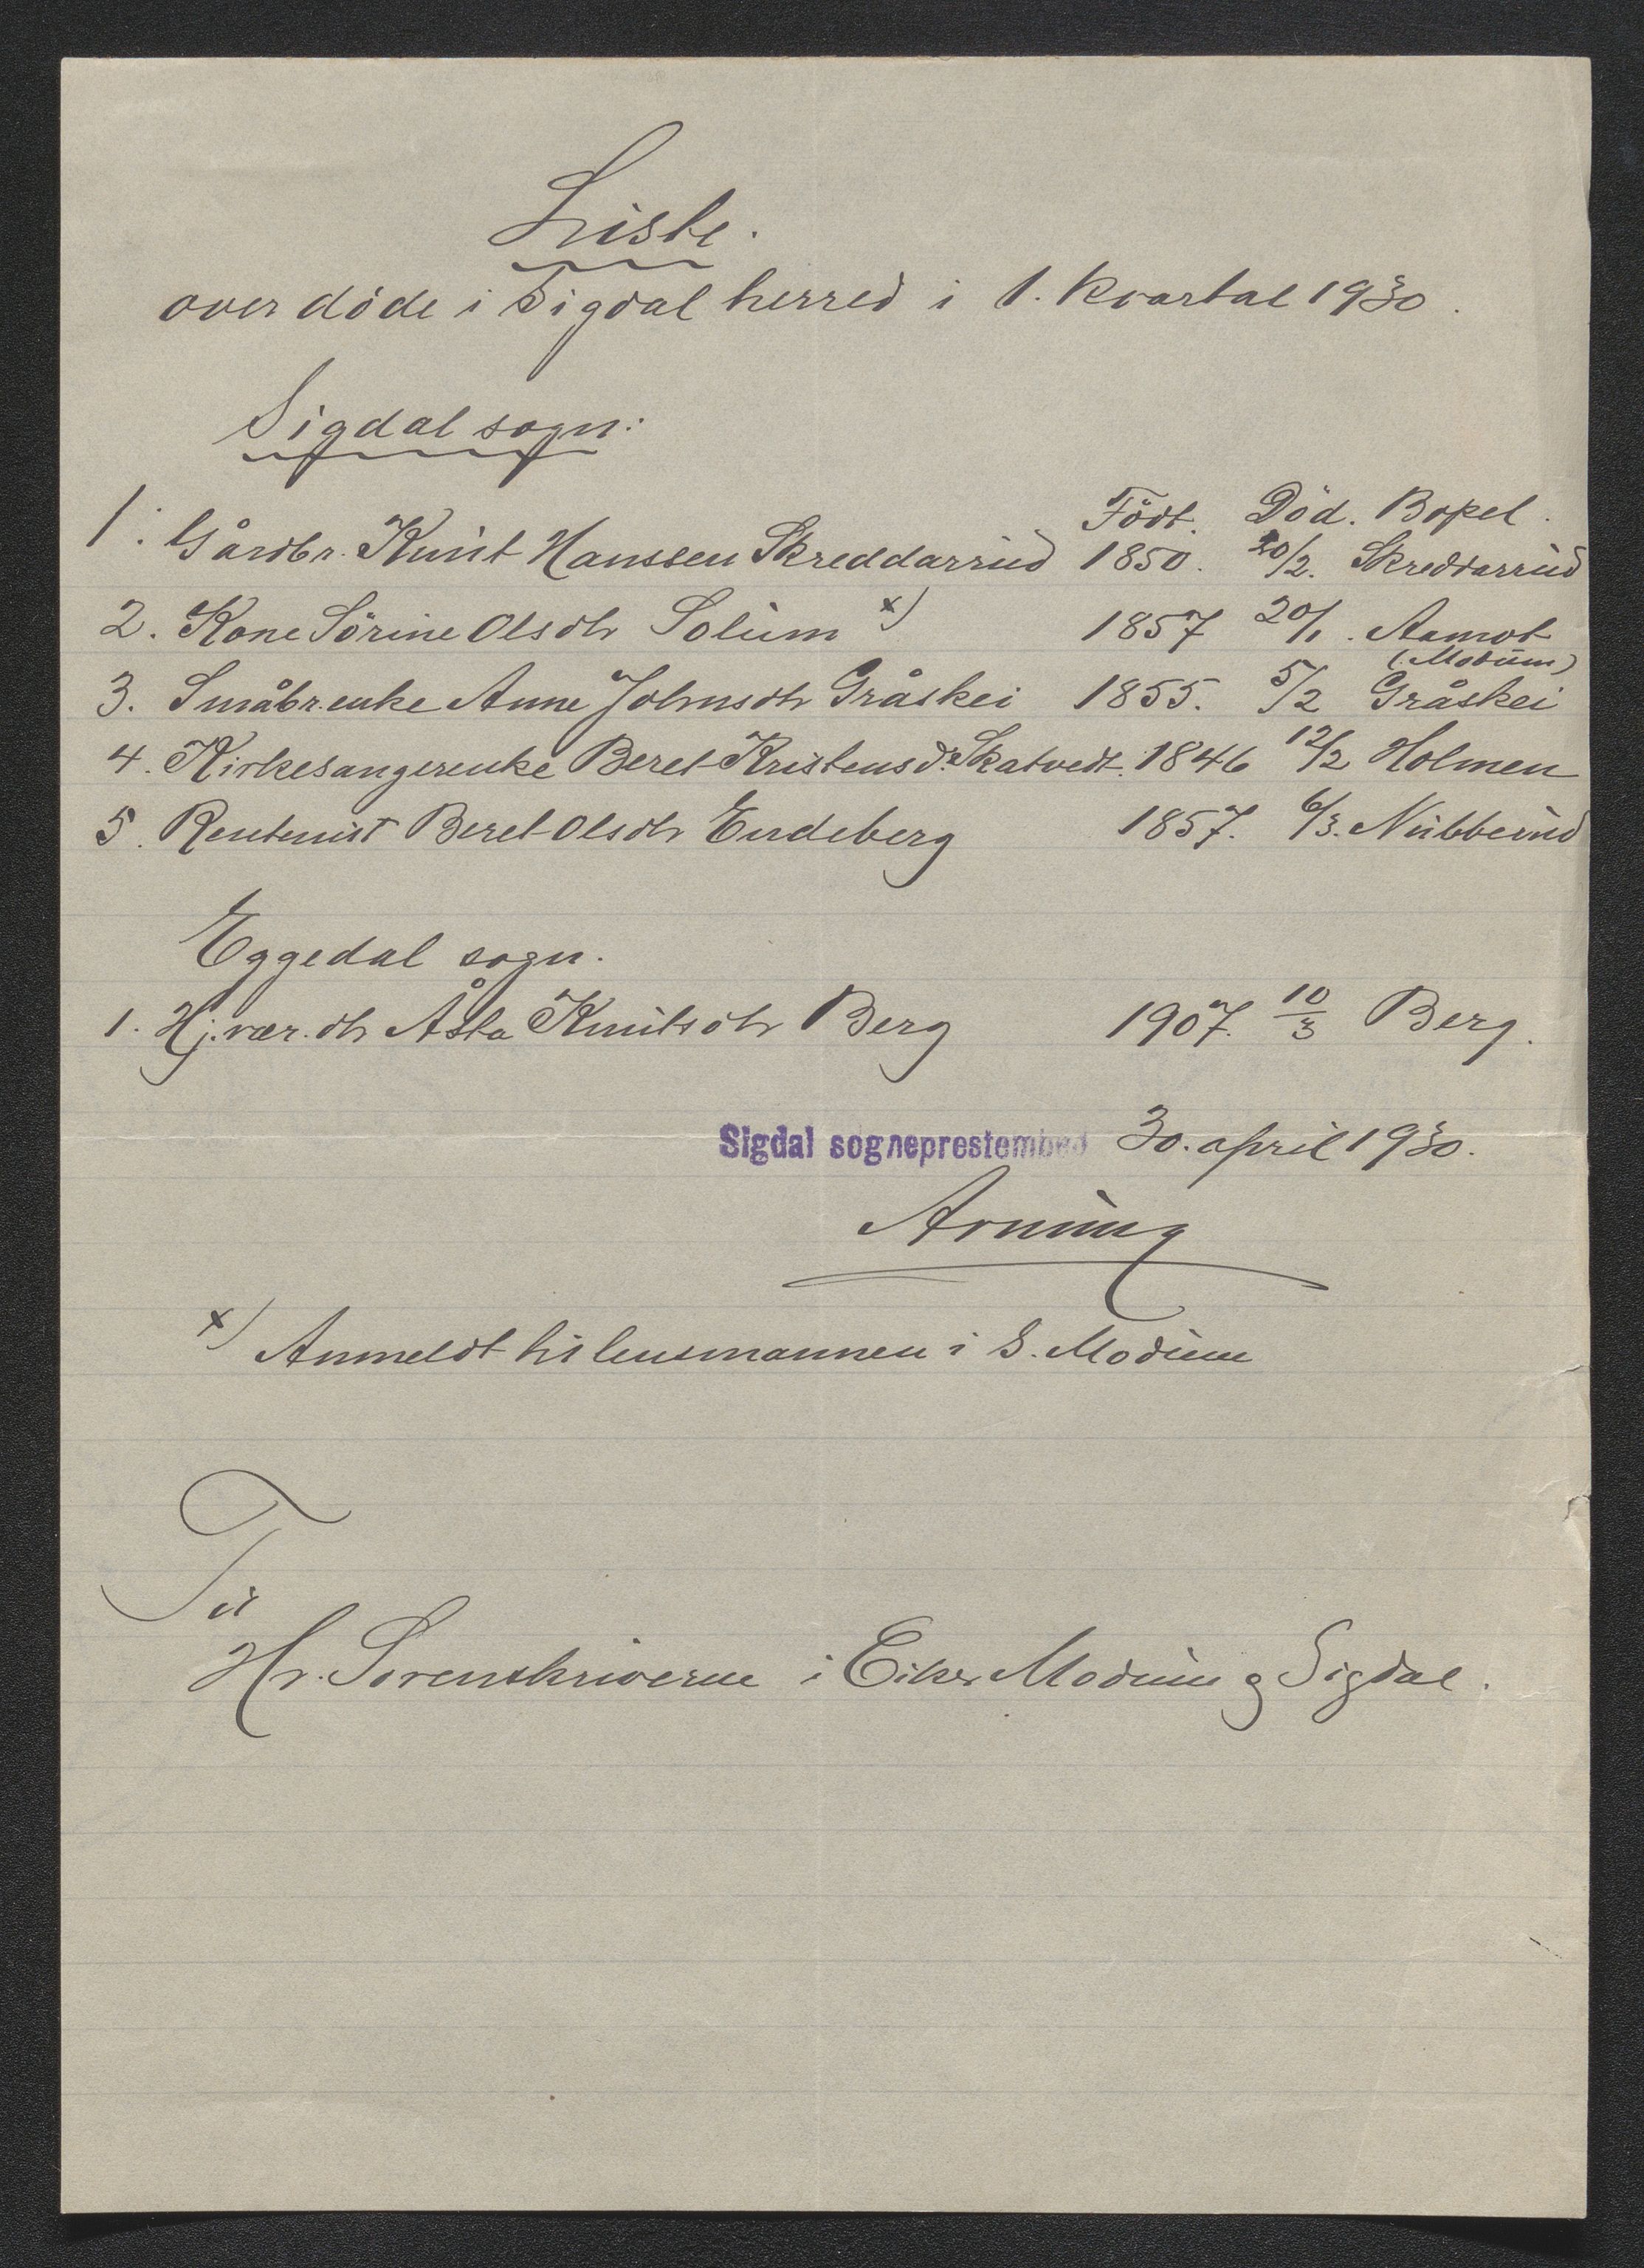 Liste.
over döde i Sigdal herred i 1. kvartal 1930.
Sigdal sogn:
Födt. Död. Bopel.
1. Gårdbr. Knut Hanssen Skreddarrud 1850. 20/2. Skreddarrud
2. Kone Sörine Olsdtr Solum x) 1857 20/1. Aamot
(Modum)
3. Småbr.enke Anne Johnsdtr Gråskei 1855. 5/2 Gråskei
4. Kirkesangerenke Beret Kristensd. Skatvedt. 1846 12/2 Holmen
5. Rentenist Beret Olsdtr Endeberg 1857. 6/3. Nubberud
Eggedal sogn.
1. Hj.vær. dtr Åsta Knutsdtr Berg 1907. 10/3 Berg.
Sigdal sogneprestembed 30. april 1930.
Arnung
x) Anmeldt til lensmannen i S. Modum
Til
Hr. Sorenskriveren i Eiker Modum og Sigdal.